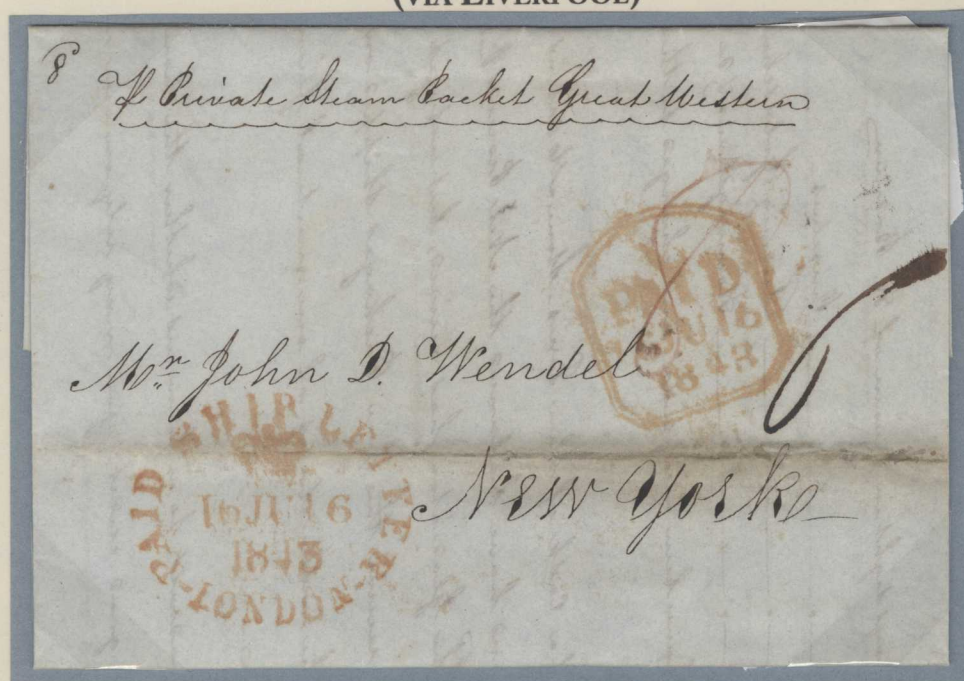 (VIA LIVERPOOL)
8
P Private Steam Packet Great Western
PAID
JU 16
1843
6
Mr. John D. Wendel
New York
PAID SHIP LETTER LONDON
16 JU 16
1843